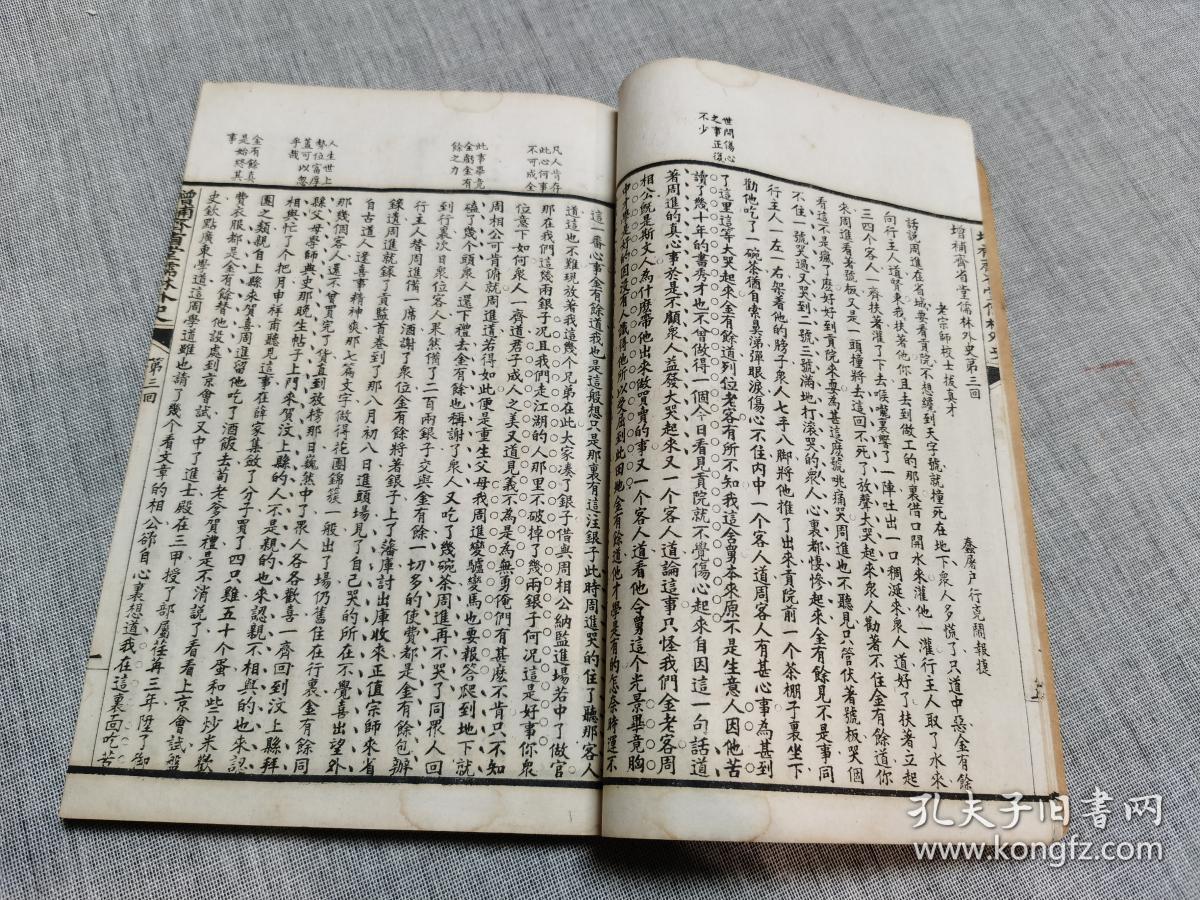 世間傷心
之事正復
不少
增補齊省堂儒林外史第三回
老宗師校士拔真才
蠢屠戶行克鬧報捷
話說周進在省城要看貢院不想纔到天字號就撞死在地下衆人多慌了只道中惡金有餘
向行主人道舅夫我扶著他你且去到做工的那裏借口開水來灌他一灌行主人取了水來
三四個客人一齊扶著灌了下去喉嚨裏響了一陣吐出一口稠涎來衆人道好了扶著立起
來周進看著號板又是一頭撞將去這回不死了放聲大哭起來衆人勸著不住金有餘道你
看這不是瘋了麽好好到貢院來耍為甚這麽號咷痛哭周進也不聽見只管伏著號板哭個
不住一號哭過又哭到二號三號滿地打滾哭的衆人心裏都悽慘起來金有餘見不是事同
行主人一左一右架著他的膀子衆人七手八脚將他推了出來貢院前一個茶棚子裏坐下
勸他吃了一碗茶猶自索鼻涕彈眼淚傷心不住內中一個客人道周客人有甚心事為甚到
了這里這等大哭起來金有餘道列位老客有所不知我這舍舅本來原不是生意人因他苦
讀了幾十年的書秀才也不曾做得一個今日看見貢院就不覺傷心起來自因這一句話道
著周進的真心事於是不顧衆人益發大哭起來又一個客人道論這事只怪我們金老客周
相公既是斯文人為什麽帶他出來做買賣的事又一個客人道看他令舅這個光景畢竟胸
中才學是好的因沒有人識得他所以受屈到此田地金有餘道他才學是有的怎奈時運不
凡人肯存
此心何事
不可成全
此事畢竟
全虧金有
餘之力
人生世上
勢位富厚
蓋可以忽
乎哉
金有餘真
是始終其
事
這一番心事金有餘道我也是這般想只是那裏有這注銀子此時周進哭的住了聽那客人
道這也不難現放著我這幾個兄弟在此大家湊了銀子借與周相公納監進場若中了做官
那在我們這幾兩銀子况且我們走江湖的人那里不破掉了幾兩銀子何况這是好事你衆
位意下如何衆人一齊道君子成人之美又道見義不為是為無勇俺們有甚麽不肯只不知
周相公可肯俯就周進道若得如此便是重生父母我周進變驢變馬也要報答爬到地下就
磕了幾個頭衆人還下禮去金有餘也稱謝了衆人又吃了幾碗茶周進再不哭了同衆人回
到行裏次日衆位客人果然備了二百兩銀子交與金有餘一切多的使費都是金有餘包辦
行主人替周進備一席酒謝了衆位金有餘將著銀子上了藩庫討出庫收來正值宗師來省
錄遺周進就錄了貢監首卷到了那八月初八日進頭場見了自己哭的所在不覺喜出望外
自古道人逢喜事精神爽那七篇文字做得花團錦簇一般出了場仍舊住在行裏金有餘同
那幾個客人還不曾買完了貨直到放榜那日巍然中了衆人各各歡喜一齊回到汶上縣拜
縣父母學師典史那晚生帖子上門來賀汶上縣的人不是親的也來認親不相與的也來認
相與忙了個把月申祥甫聽見這事在薛家集斂了分子買了四只雞五十個蛋和些炒米歡
團之類親自上縣來賀喜周進留他吃了酒飯去荀老爹賀禮是不消說了看看上京會試盤
費衣服都是金有餘替他設處到京會試又中了進士殿在三甲授了部屬荏苒三年陞了御
史欽點廣東學道這周學道雖也請了幾個看文章的相公卻自心裏想道我在這裏面吃苦
增補齊省堂儒林外史
第三回
一
孔夫子旧书网
www.kongfz.com